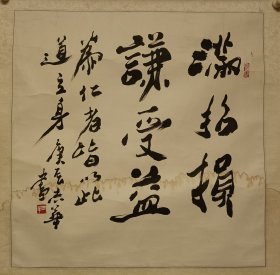 滿招損
謙受益
慕仁者皆以此
道立身 庚辰志華
書